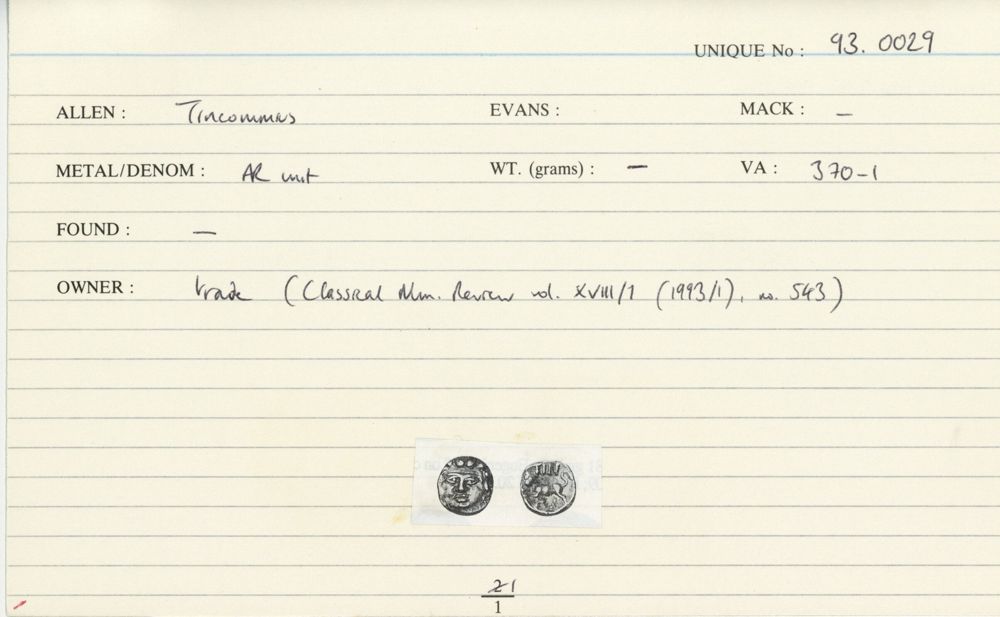 UNIQUE No : 93. 0029
ALLEN : Tincommius EVANS : MACK : —
METAL/DENOM : AR unit WT. (grams) : — VA : 370-1
FOUND : —
OWNER : trade (Classical Num. Review vol. XVIII/1 (1993/1), no. 543)
TIN
1
1